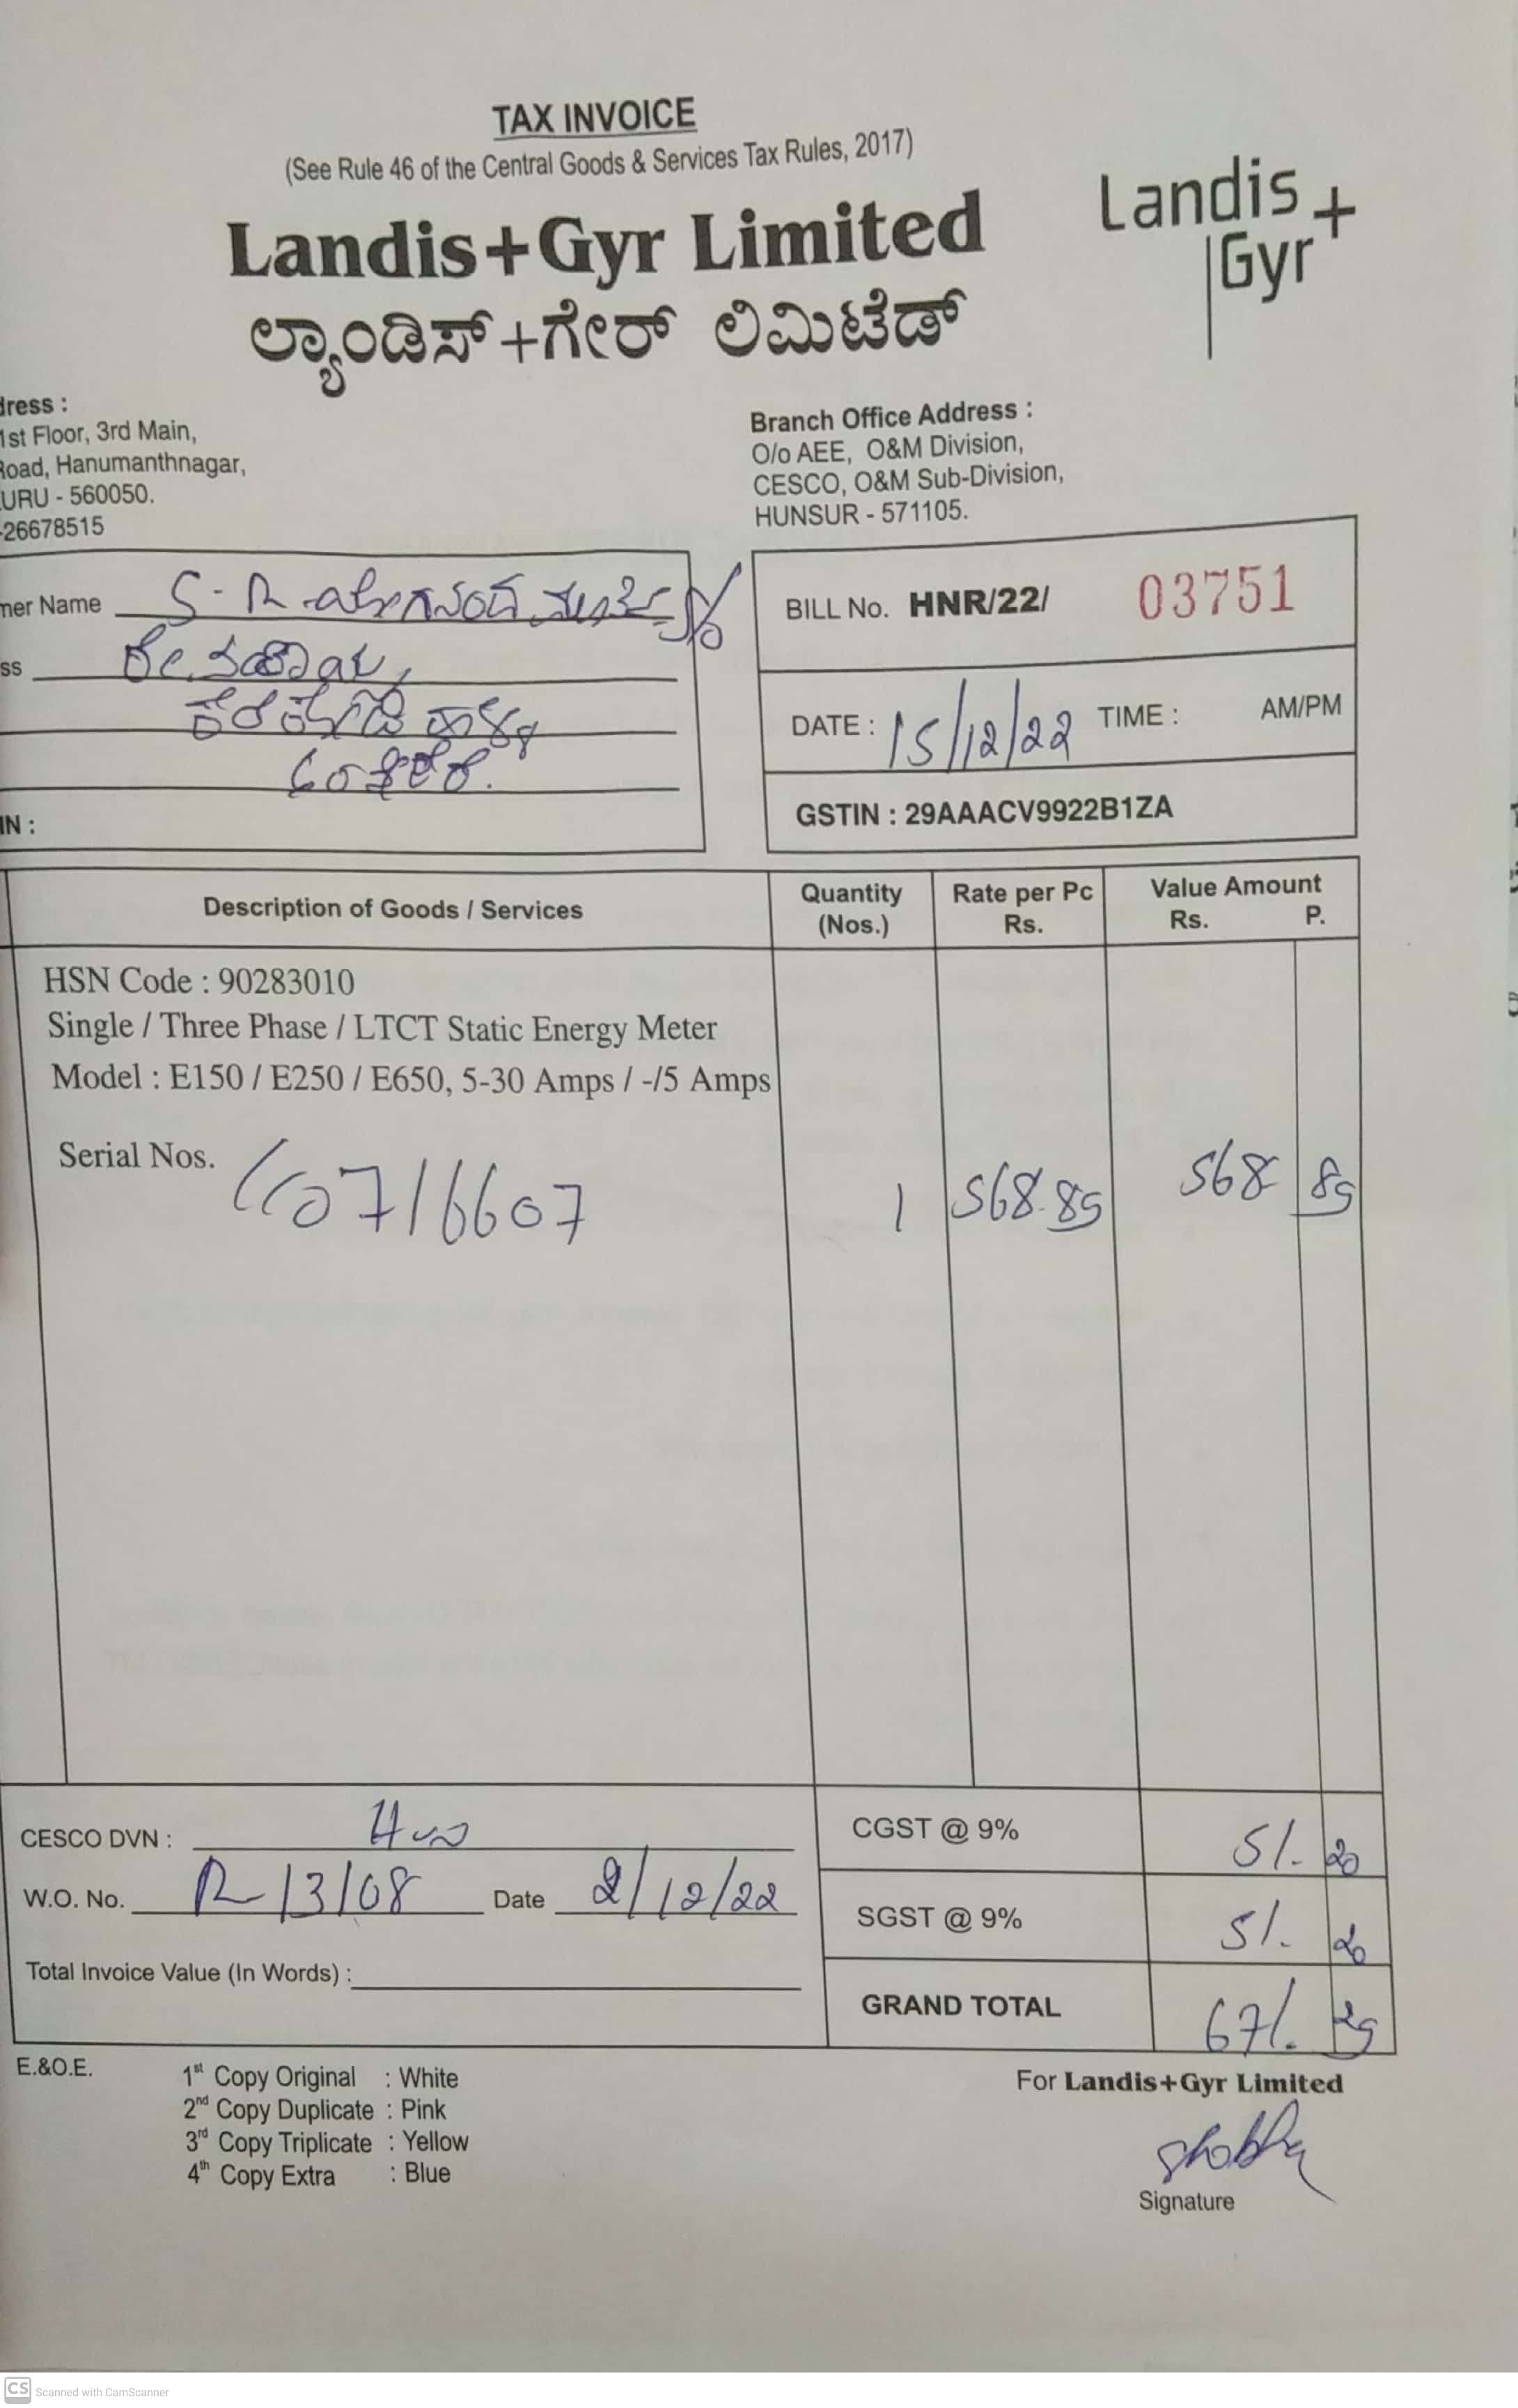 TAX INVOICE
(See Rule 46 of the Central Goods & Services Tax Rules, 2017)
Landis+Gyr Limited
ಲ್ಯಾಂಡಿಸ್+ಗೇರ್ ಲಿಮಿಟೆಡ್
Landis+
Gyr
dress :
1st Floor, 3rd Main,
Road, Hanumanthnagar,
URU - 560050.
-26678515
Branch Office Address :
O/o AEE, O&M Division,
CESCO, O&M Sub-Division,
HUNSUR - 571105.
mer Name S-R
ss
IN :
BILL No. HNR/22/ 03751
DATE : 15/12/22 TIME : AM/PM
GSTIN : 29AAACV9922B1ZA
Description of Goods / Services Quantity (Nos.) Rate per Pc Rs. Value Amount Rs. P.
HSN Code : 90283010
Single / Three Phase / LTCT Static Energy Meter
Model : E150 / E250 / E650, 5-30 Amps / -/5 Amps
Serial Nos. 1 568.85 568 85
CESCO DVN :
W.O. No. R-13/08 Date 2/12/22
Total Invoice Value (In Words) :
CGST @ 9% 51. 20
SGST @ 9% 51. 20
GRAND TOTAL 671. 25
E.&O.E.
1st Copy Original : White
2nd Copy Duplicate : Pink
3rd Copy Triplicate : Yellow
4th Copy Extra : Blue
For Landis+Gyr Limited
Shobha
Signature
CS Scanned with CamScanner